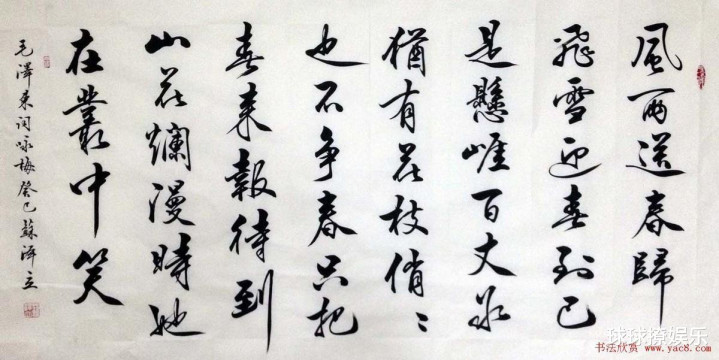 風雨送春歸
飛雪迎春到已
是懸崖百丈冰
猶有花枝俏〻
也不争春只把
春來報待到
山花爛漫時她
在叢中笑
毛澤東詞咏梅癸巳蘇澤立
球球撩娱乐
书法欣赏 www.yac8.com